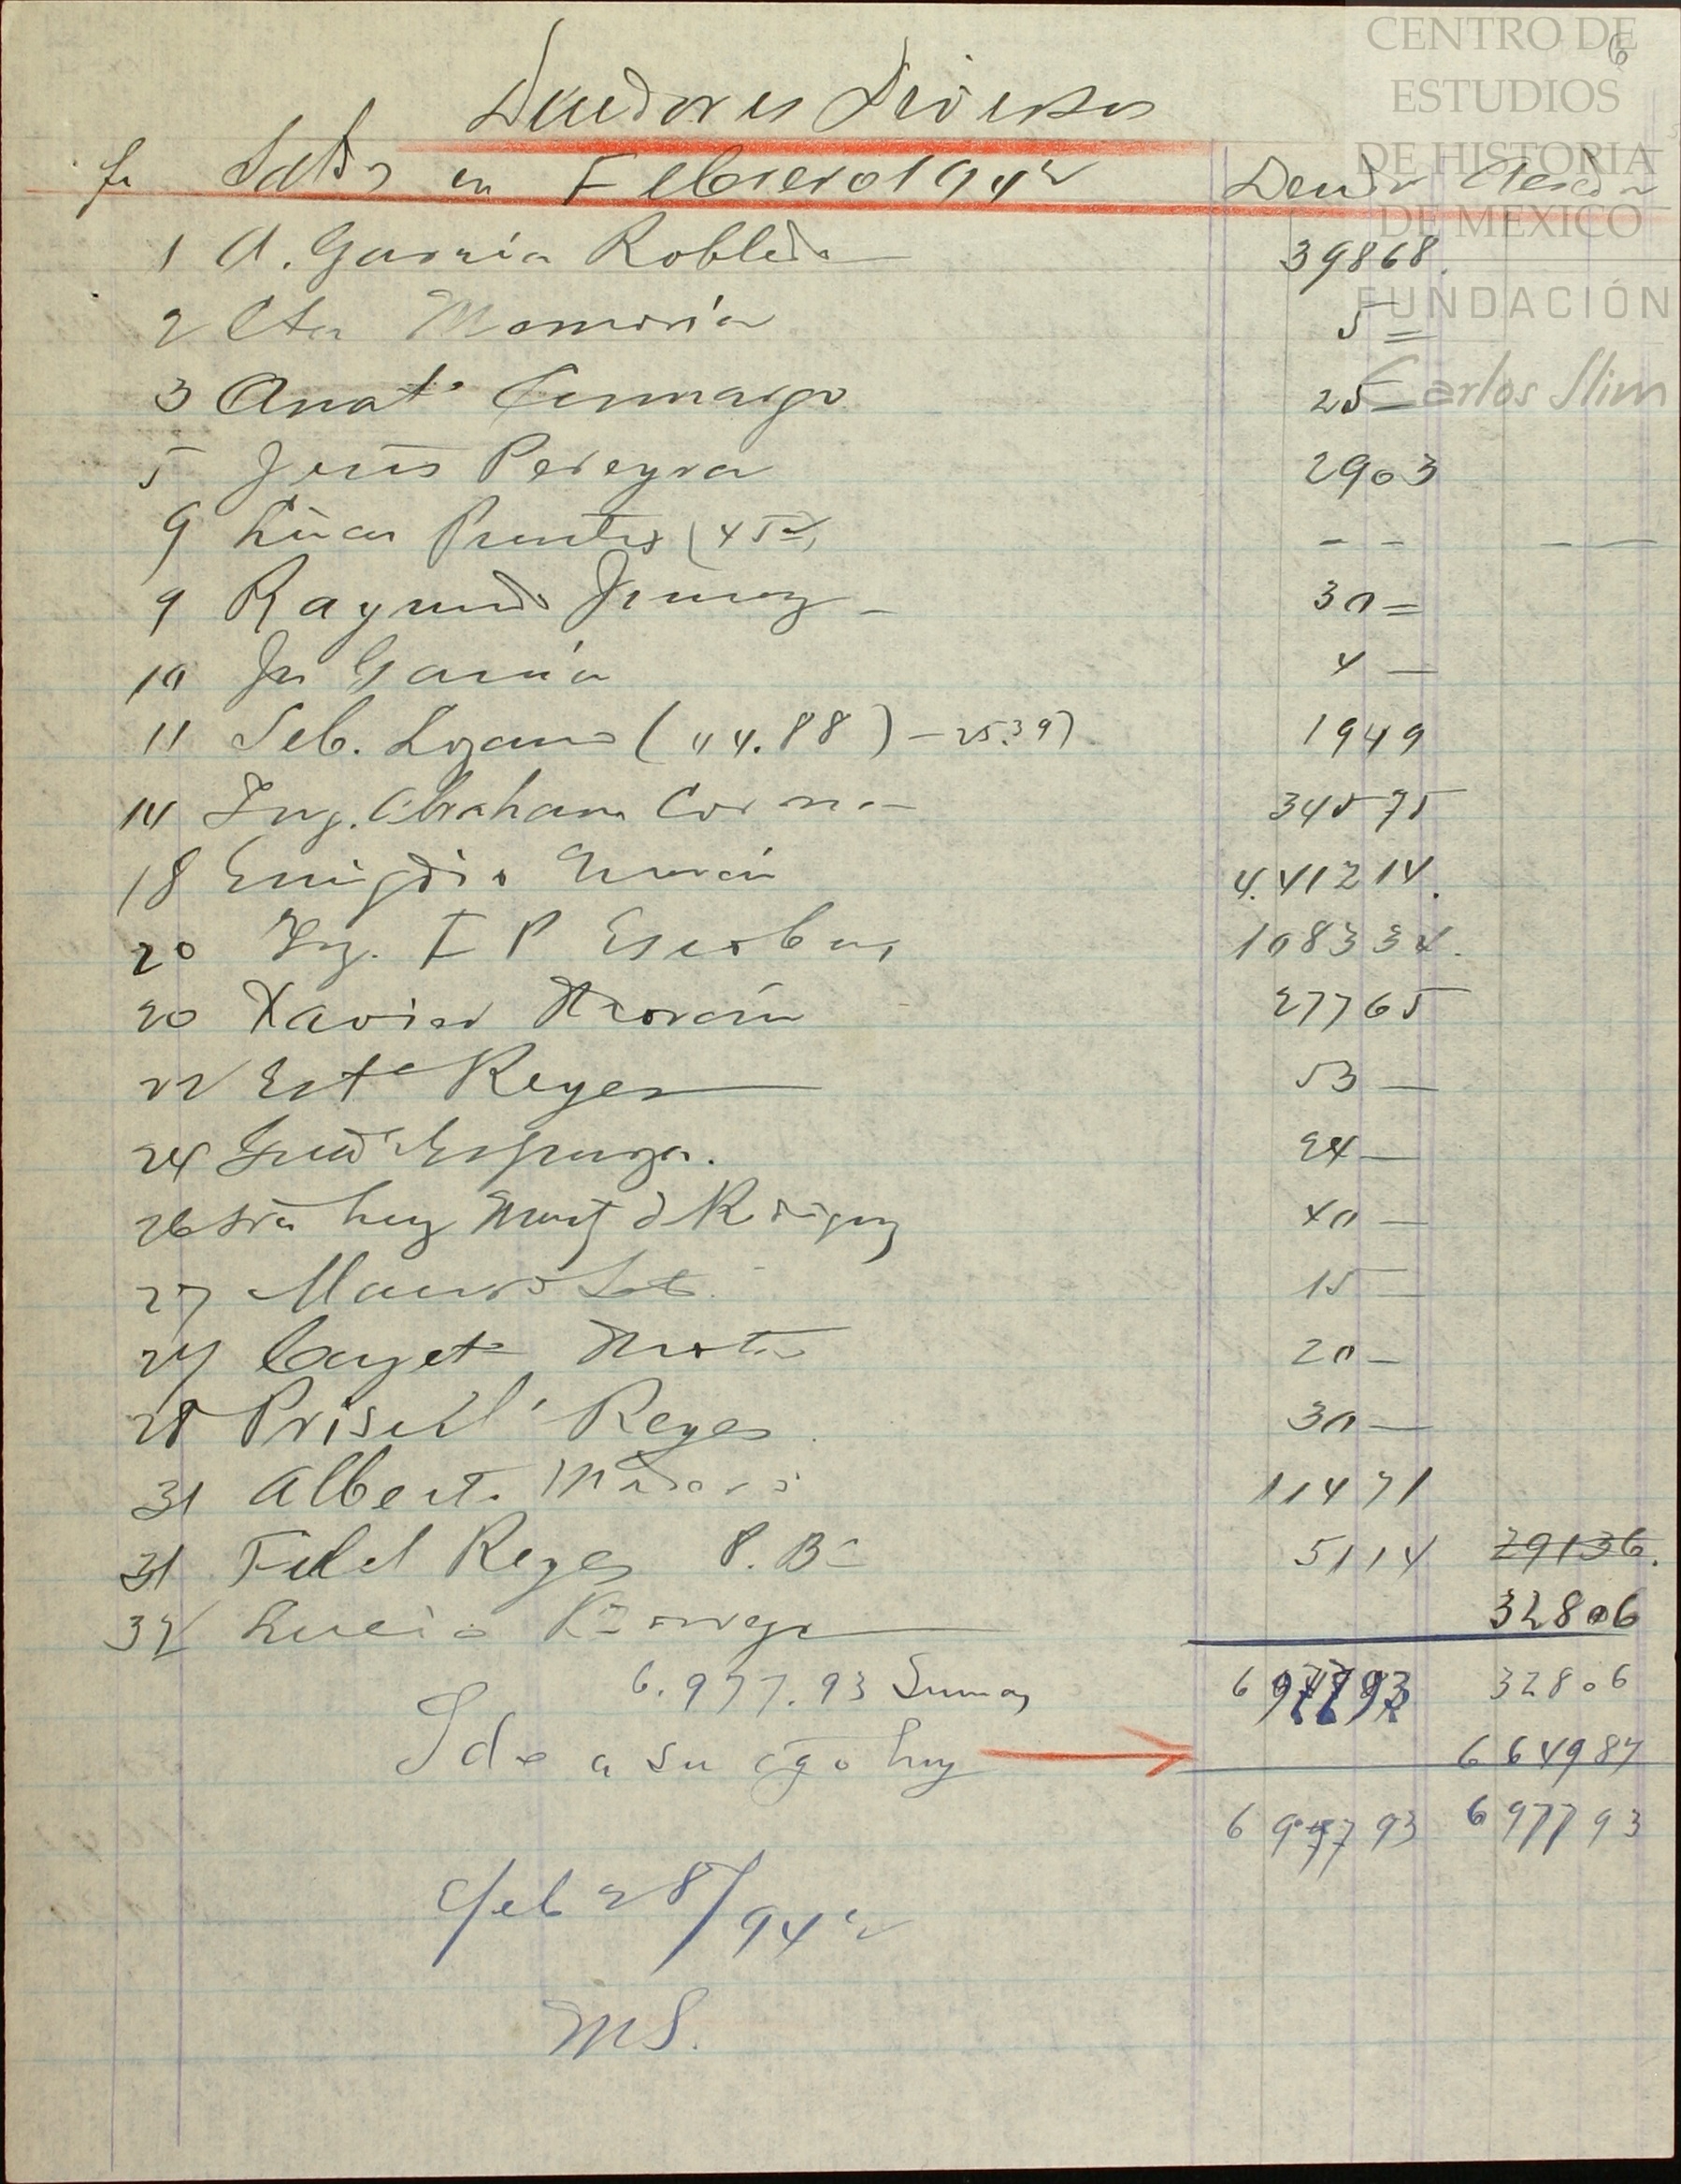 CENTRO DE
ESTUDIOS
DE HISTORIA
DE MEXICO
FUNDACIÓN
Carlos Slim
6
Deudores Diversos
fo Saldos en Febrero 1942 Deudor Acreedor
1 A. García Robledo 39868.
2 Cta Memoria 5 =
3 Anat° Camargo 25 —
5 Jesús Pereyra 2903
9 Lucas Puentes (45 - - - —
9 Raymundo Jimenez - 30 =
10 Jn García 4 —
11 Seb. Lozano (44.88) - 25.39) 1949
14 Ing. Abraham Corona 34575
18 Emigdio Morán 4.41214.
20 Ing. I P Escobar 108334.
20 Xavier Morán 27765
22 Est° Reyes 53 —
24 Esparza. 24 —
26 Sra Luz Mart d Rodriguez 40 —
27 Mauro Soto 15 —
27 Cayet° 20 —
28 Priscil° Reyes 30 —
31 Albert° 11471
31 Fidel Reyes 8. Ba 5114 29136.
32 Lucio 32806
6.977.93 Sumas 6 97793 32806
Sdo a su cgo hoy 6 64987
6 97793 6 97793
Feb 28/942
MS.